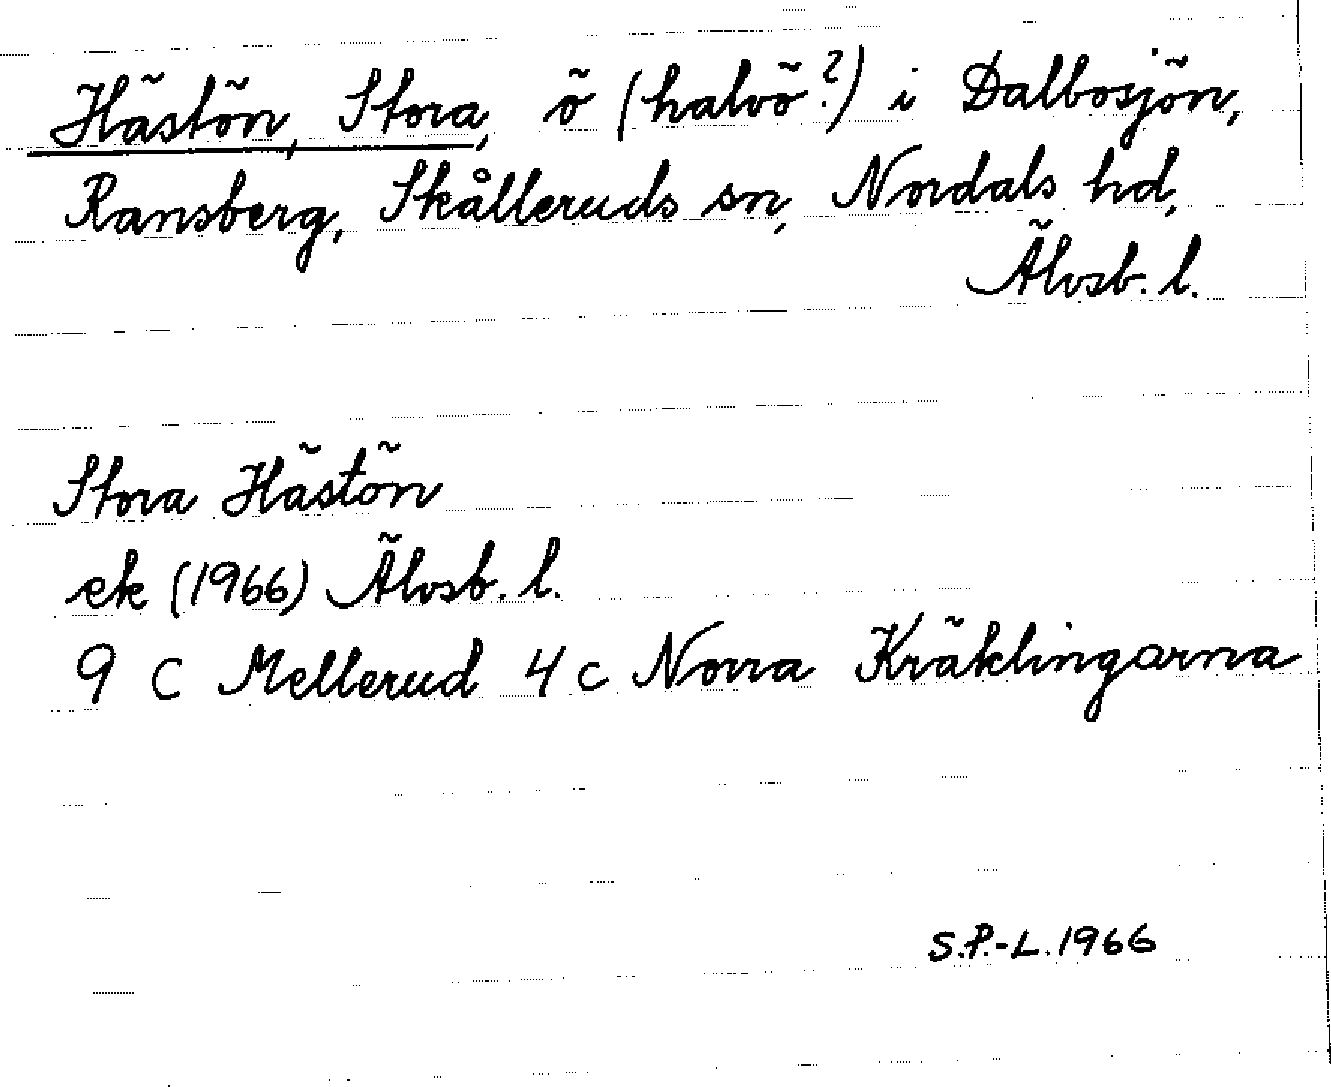 Hästön, Stora, ö (halvö?) i Dalbosjön,
Ransberg, Skålleruds sn, Nordals hd,
Älvsb. l.
Stora Hästön
ek (1966) Älvsb. l.
9 C Mellerud 4 c Norra Kräklingarna
S.P.-L. 1966